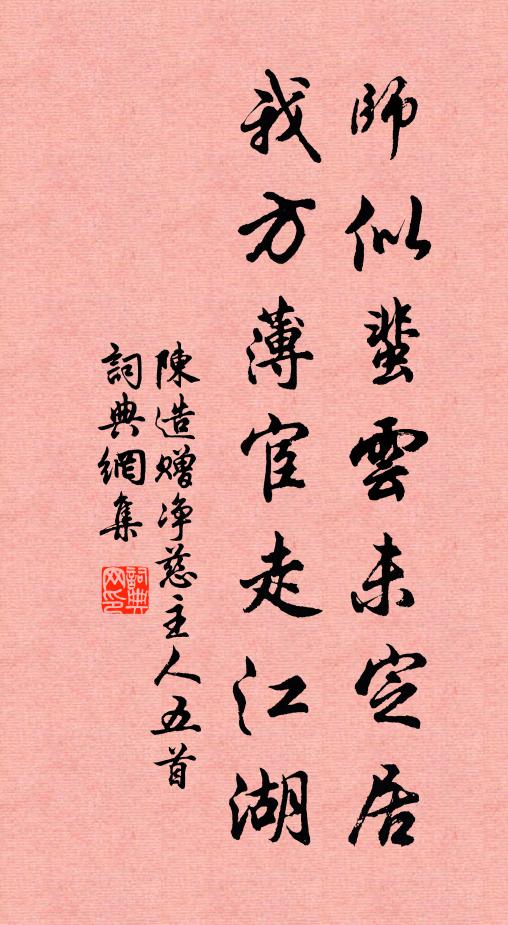 師似蜚雲未定居
我方薄宦走江湖
陳造赠净慈主人五首
詞典網集
詞典网印